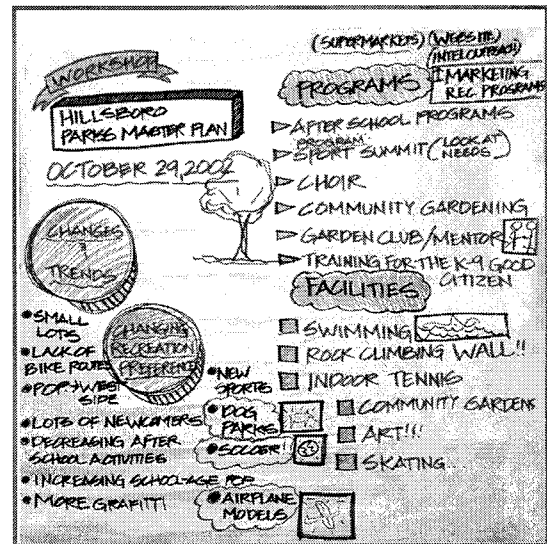 WORKSHOP
HILLSBORO
PARKS MASTER PLAN
OCTOBER 29, 2002
CHANGES
&
TRENDS
SMALL
LOTS
LACK OF
BIKE ROUTES
POP → WEST
SIDE
LOTS OF NEWCOMERS
DECREASING AFTER
SCHOOL ACTIVITIES
INCREASING SCHOOL-AGE POP
MORE GRAFITTI
CHANGING
RECREATION
PREFERENCE
NEW
SPORTS
DOG
PARKS
SOCCER!
AIRPLANE
MODELS
(SUPERMARKETS) (WEBSITE)
PROGRAMS
MARKETING
REC. PROGRAMS
AFTER SCHOOL PROGRAMS
PROGRAM
SPORT SUMMIT (LOOK AT
NEEDS)
CHOIR
COMMUNITY GARDENING
GARDEN CLUB/MENTOR
TRAINING FOR THE K-9 GOOD
CITIZEN
FACILITIES
SWIMMING
ROCK CLIMBING WALL!!
INDOOR TENNIS
COMMUNITY GARDENS
ART!!!
SKATING...